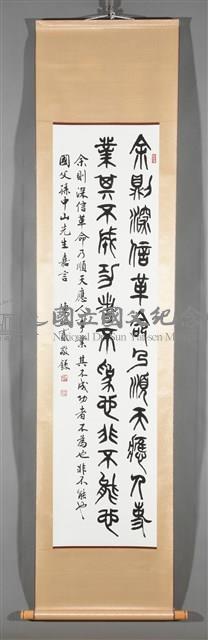 余則深信革命乃順天應人事
業其不成功者不為也非不能也
余則深信革命乃順天應人事業其不成功者不為也非不能也
國父孫中山先生嘉言 敬錄
國立國父紀念
National Dr. Sun Yat-sen